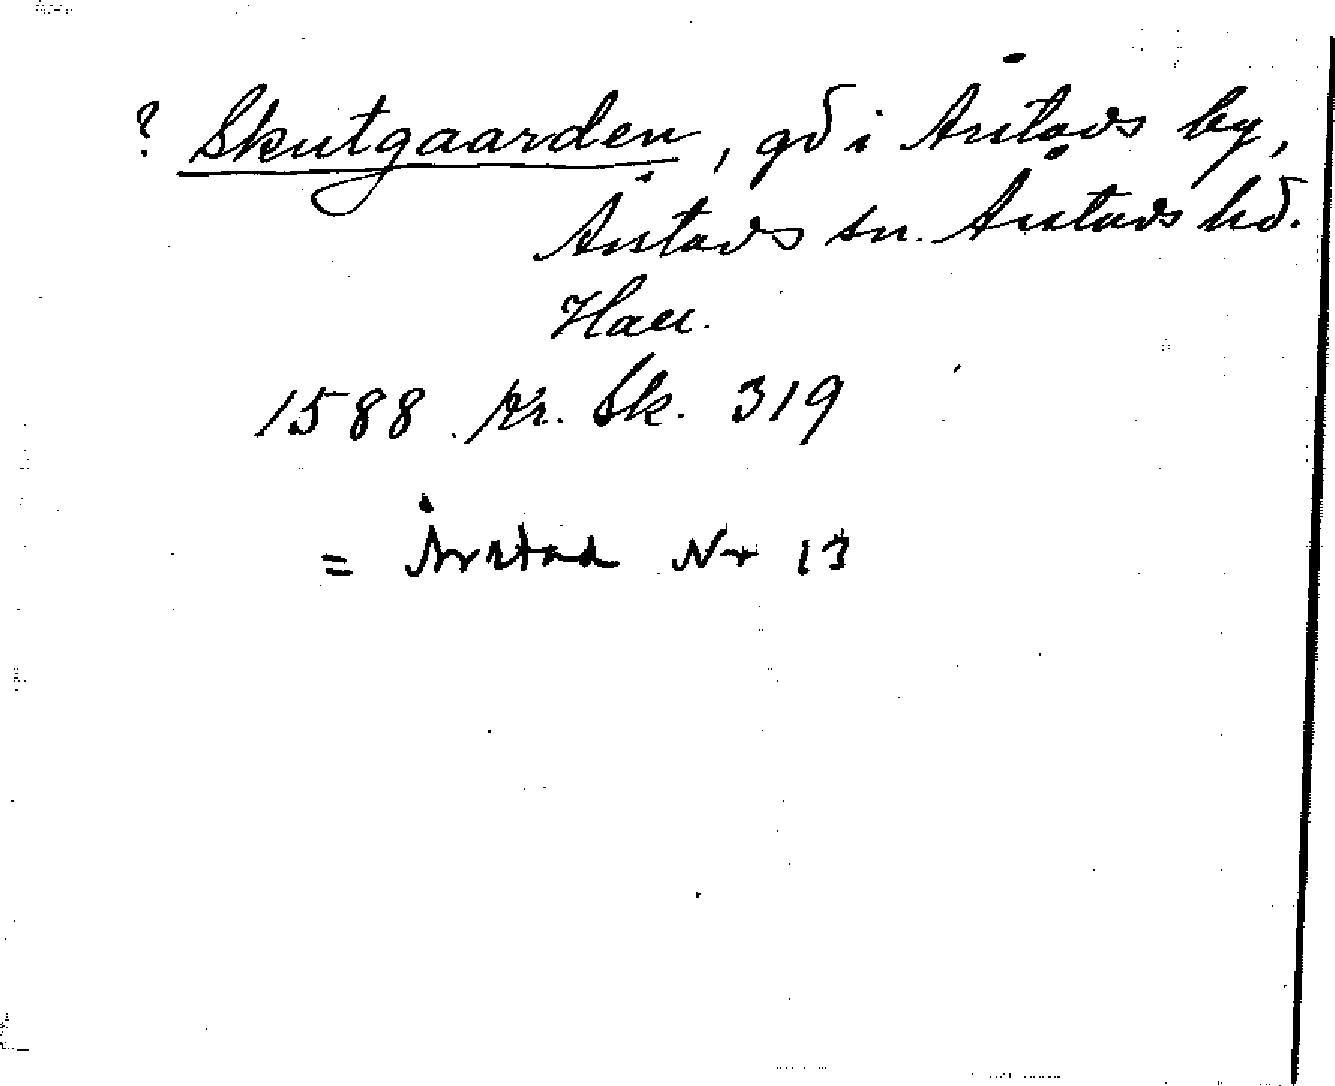 ? Skutgaarden, gd i Årstads by,
Årstads sn. Årstads hd.
Hall.
1588 Kr. Sk. 319
= Årstad Nr 13